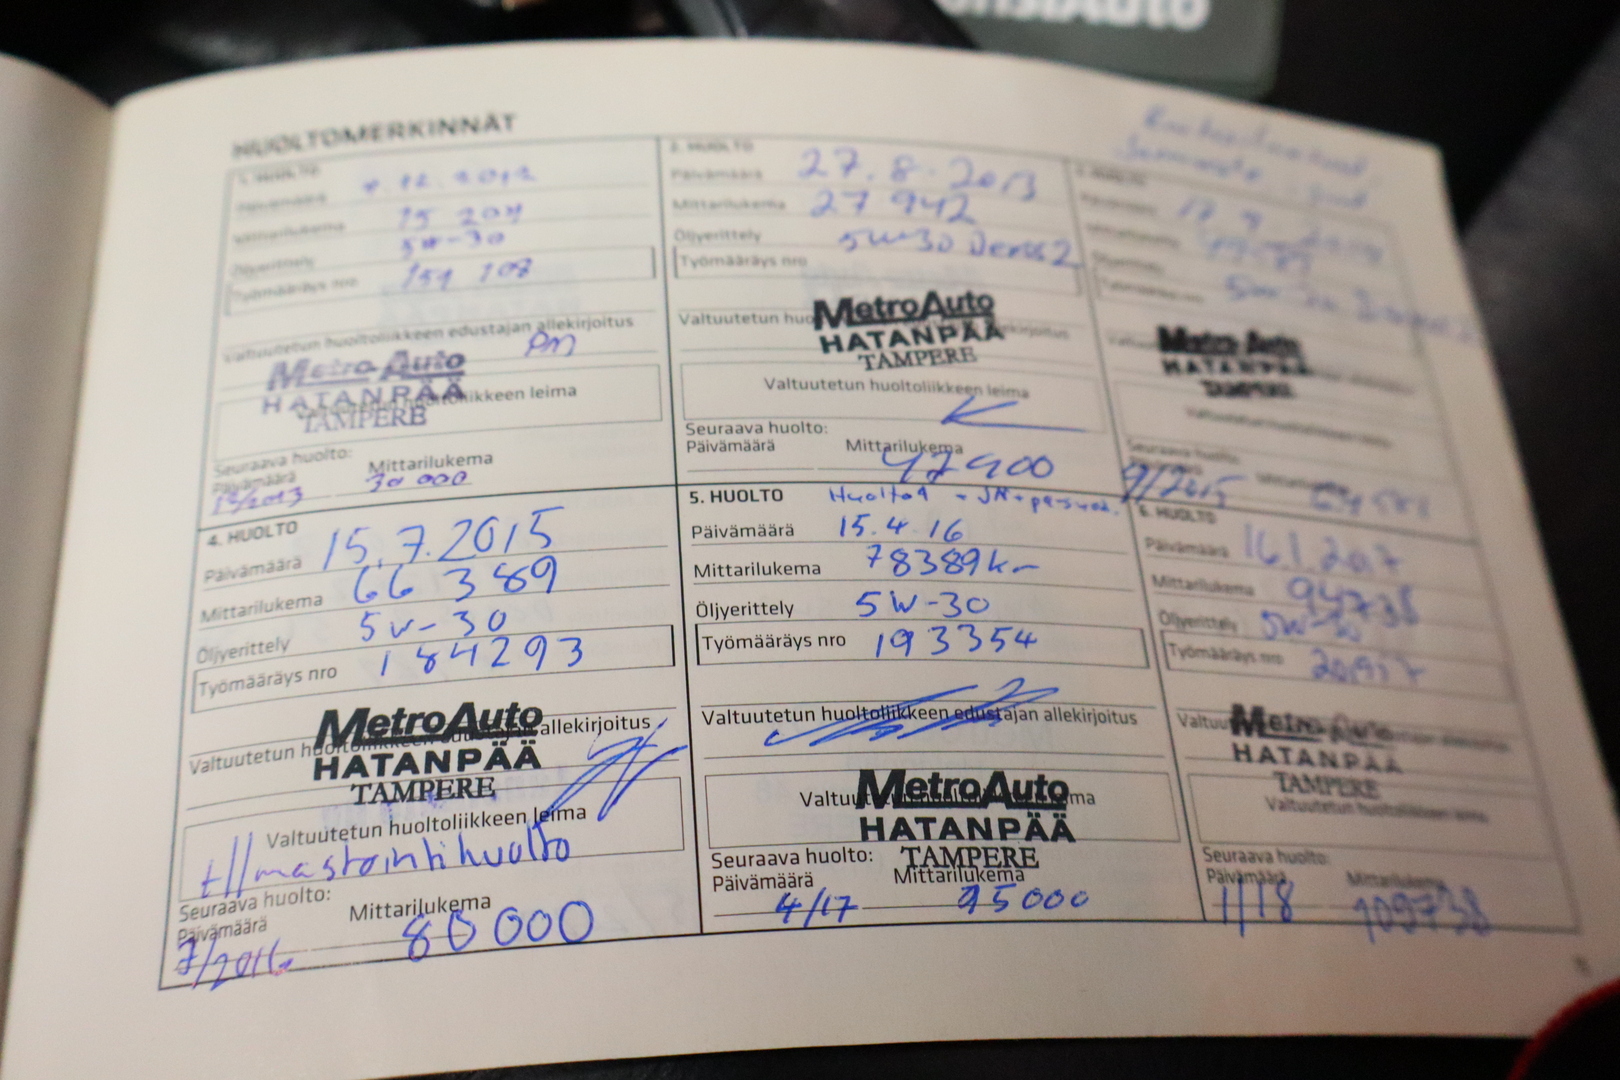 HUOLTOMERKINNÄT
1. HUOLTO
Päivämäärä 12.2012
Mittarilukema 15 204
Öljyerittely 5W-30
Työmääräys nro 159 108
Valtuutetun huoltoliikkeen edustajan allekirjoitus
MetroAuto
HATANPÄÄ
TAMPERE
Valtuutetun huoltoliikkeen leima
Seuraava huolto:
Päivämäärä Mittarilukema
12/2013 30 000
2. HUOLTO
Päivämäärä 27.8.2013
Mittarilukema 27 942
Öljyerittely 5W-30 Dexos2
Työmääräys nro
Valtuutetun
MetroAuto
HATANPÄÄ
TAMPERE
Valtuutetun huoltoliikkeen leima
Seuraava huolto:
Päivämäärä Mittarilukema
47900
3. HUOLTO
Päivämäärä 17.9.2014
Mittarilukema
Öljyerittely
Työmääräys nro
MetroAuto
HATANPÄÄ
TAMPERE
Valtuutetun huoltoliikkeen leima
Seuraava huolto:
Päivämäärä Mittarilukema
9/2015
4. HUOLTO
Päivämäärä 15.7.2015
Mittarilukema 66 389
Öljyerittely 5W-30
Työmääräys nro 184293
Valtuutetun huoltoliikkeen edustajan allekirjoitus
MetroAuto
HATANPÄÄ
TAMPERE
Valtuutetun huoltoliikkeen leima
+ Ilmastointihuolto
Seuraava huolto:
Päivämäärä Mittarilukema
7/2016 80000
5. HUOLTO
Päivämäärä 15.4.16
Mittarilukema 78389km
Öljyerittely 5W-30
Työmääräys nro 193354
Valtuutetun huoltoliikkeen edustajan allekirjoitus
MetroAuto
HATANPÄÄ
TAMPERE
Seuraava huolto:
Päivämäärä Mittarilukema
4/17 95000
6. HUOLTO
Päivämäärä 16.1.2017
Mittarilukema 94738
Öljyerittely 5W-30
Työmääräys nro
MetroAuto
HATANPÄÄ
TAMPERE
Valtuutetun huoltoliikkeen leima
Seuraava huolto:
Päivämäärä Mittarilukema
1/18 109738